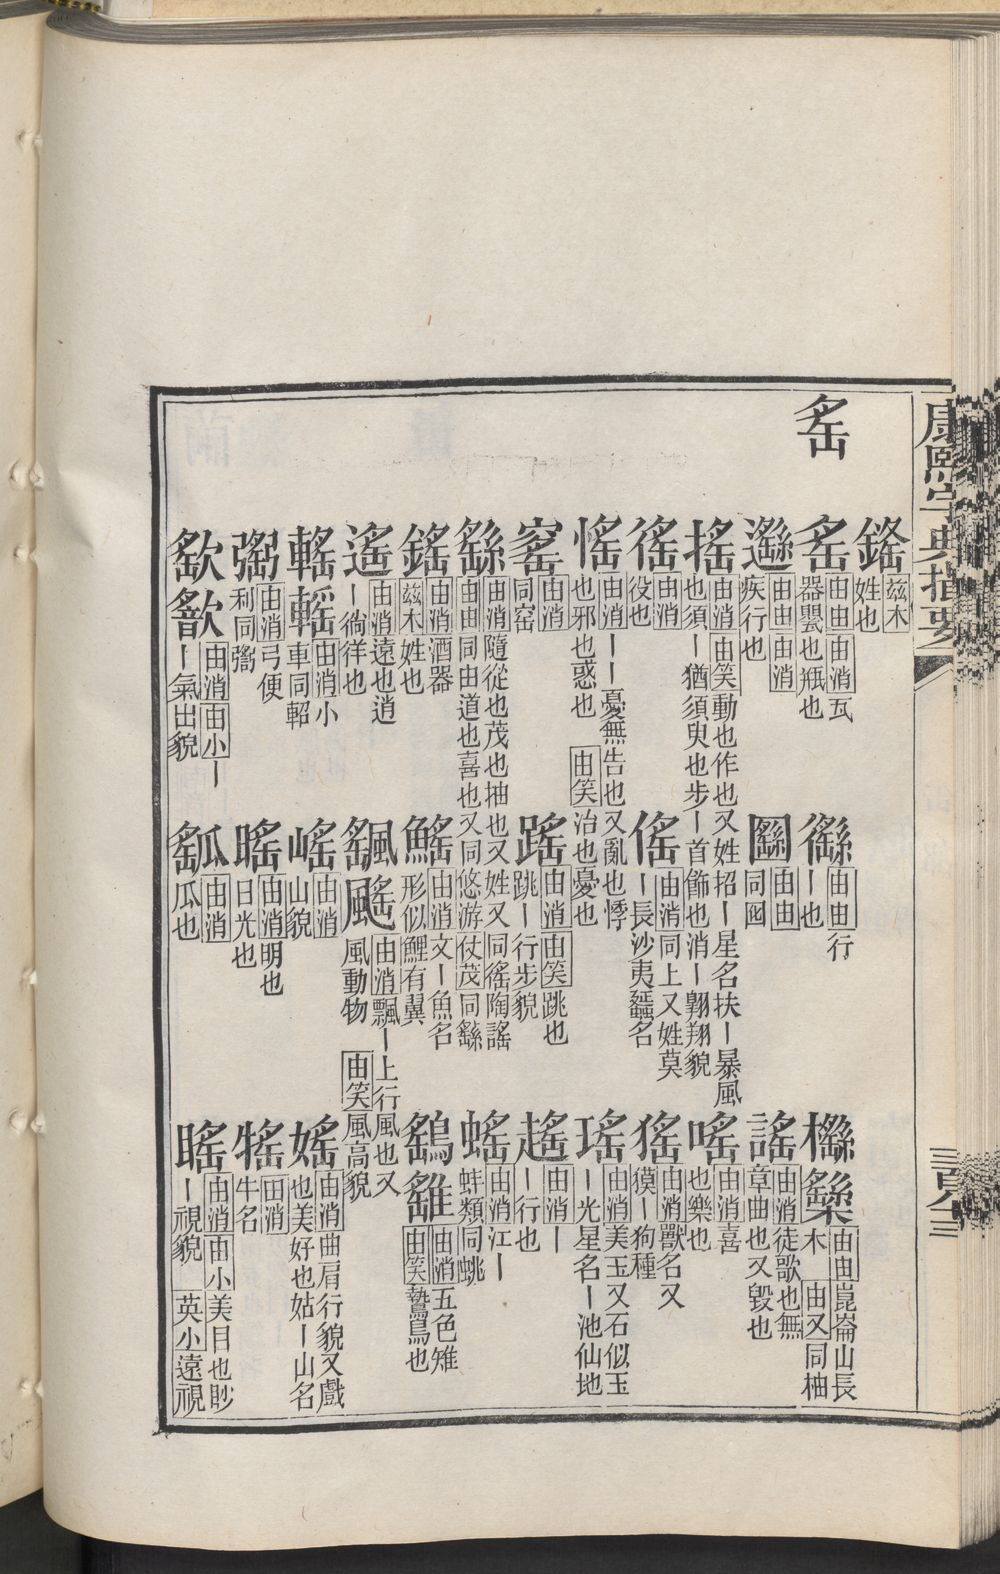 康熙字典指要
三百八十三
䍃
鎐 茲木姓也
䍃 由由由消瓦器罌也瓶也
䌛行也
櫾 由由崑崙山長木由又同柚
遙 由由由消疾行也
圝 由由同囮
謠 由消徒歌也無章曲也又毀也
搖 由消由笑動也作也又姓招ー星名扶ー暴風也須ー猶須臾也步ー首飾也消ー翺翔貌
嗂 由消喜也樂也
徭 由消役也
傜 由消同上又姓莫ー長沙夷蜑名
猺 由消獸名又獏ー狗種
愮 由消ーー憂無告也又亂也悸也邪也惑也由笑治也憂也
瑤 由消美玉又石似玉ー光星名ー池仙地
窰 由消同窑
踰 由消由笑跳也跳ー行步貌
䠛 由消ーー行也
繇 由消隨從也茂也抽也又姓又同徭陶謠由由同由道也喜也又同悠游仗茂同繇
蝖 由消江ー蚌類同蜣
鎐 由消酒器茲木姓也
鰩 由消文ー魚名形似鯉有翼
鷂 由消五色雉由笑鷙鳥也
遙 由消遠也逍ー徜徉也
颻 由消飄ー上行風也又風動物由笑風高貌
媱 由消曲肩行貌又戲也美好也姑ー山名
䡊 由消小車同軺
嶢 由消山貌
㹓 由消牛名
弻 由消弓便利同䚻
暚 由消明也日光也
歒 由消由小ー氣出貌
瓜 由消瓜也
睮 由消由小美目也眇ー視貌英小遠視